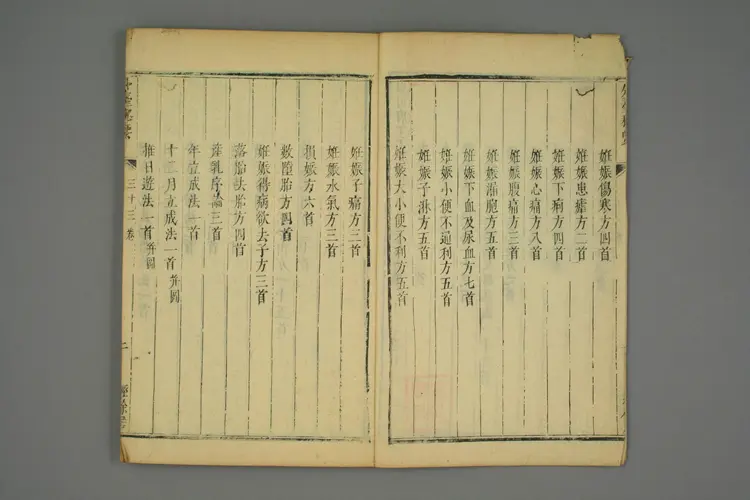 妊娠傷寒方四首
妊娠患瘧方二首
妊娠下痢方四首
妊娠心痛方八首
妊娠腹痛方三首
妊娠漏胞方五首
妊娠下血及尿血方七首
妊娠小便不通利方五首
妊娠子淋方五首
妊娠大小便不利方五首
妊娠子癎方三首
妊娠水氣方三首
損娠方六首
數墮胎方四首
妊娠得病欲去子方三首
落胎去胎方四首
産乳序論三首
年立成法一首
十二月立成法一首并圖
推日遊法一首并圖
外臺秘要
三十三卷
二
經餘居